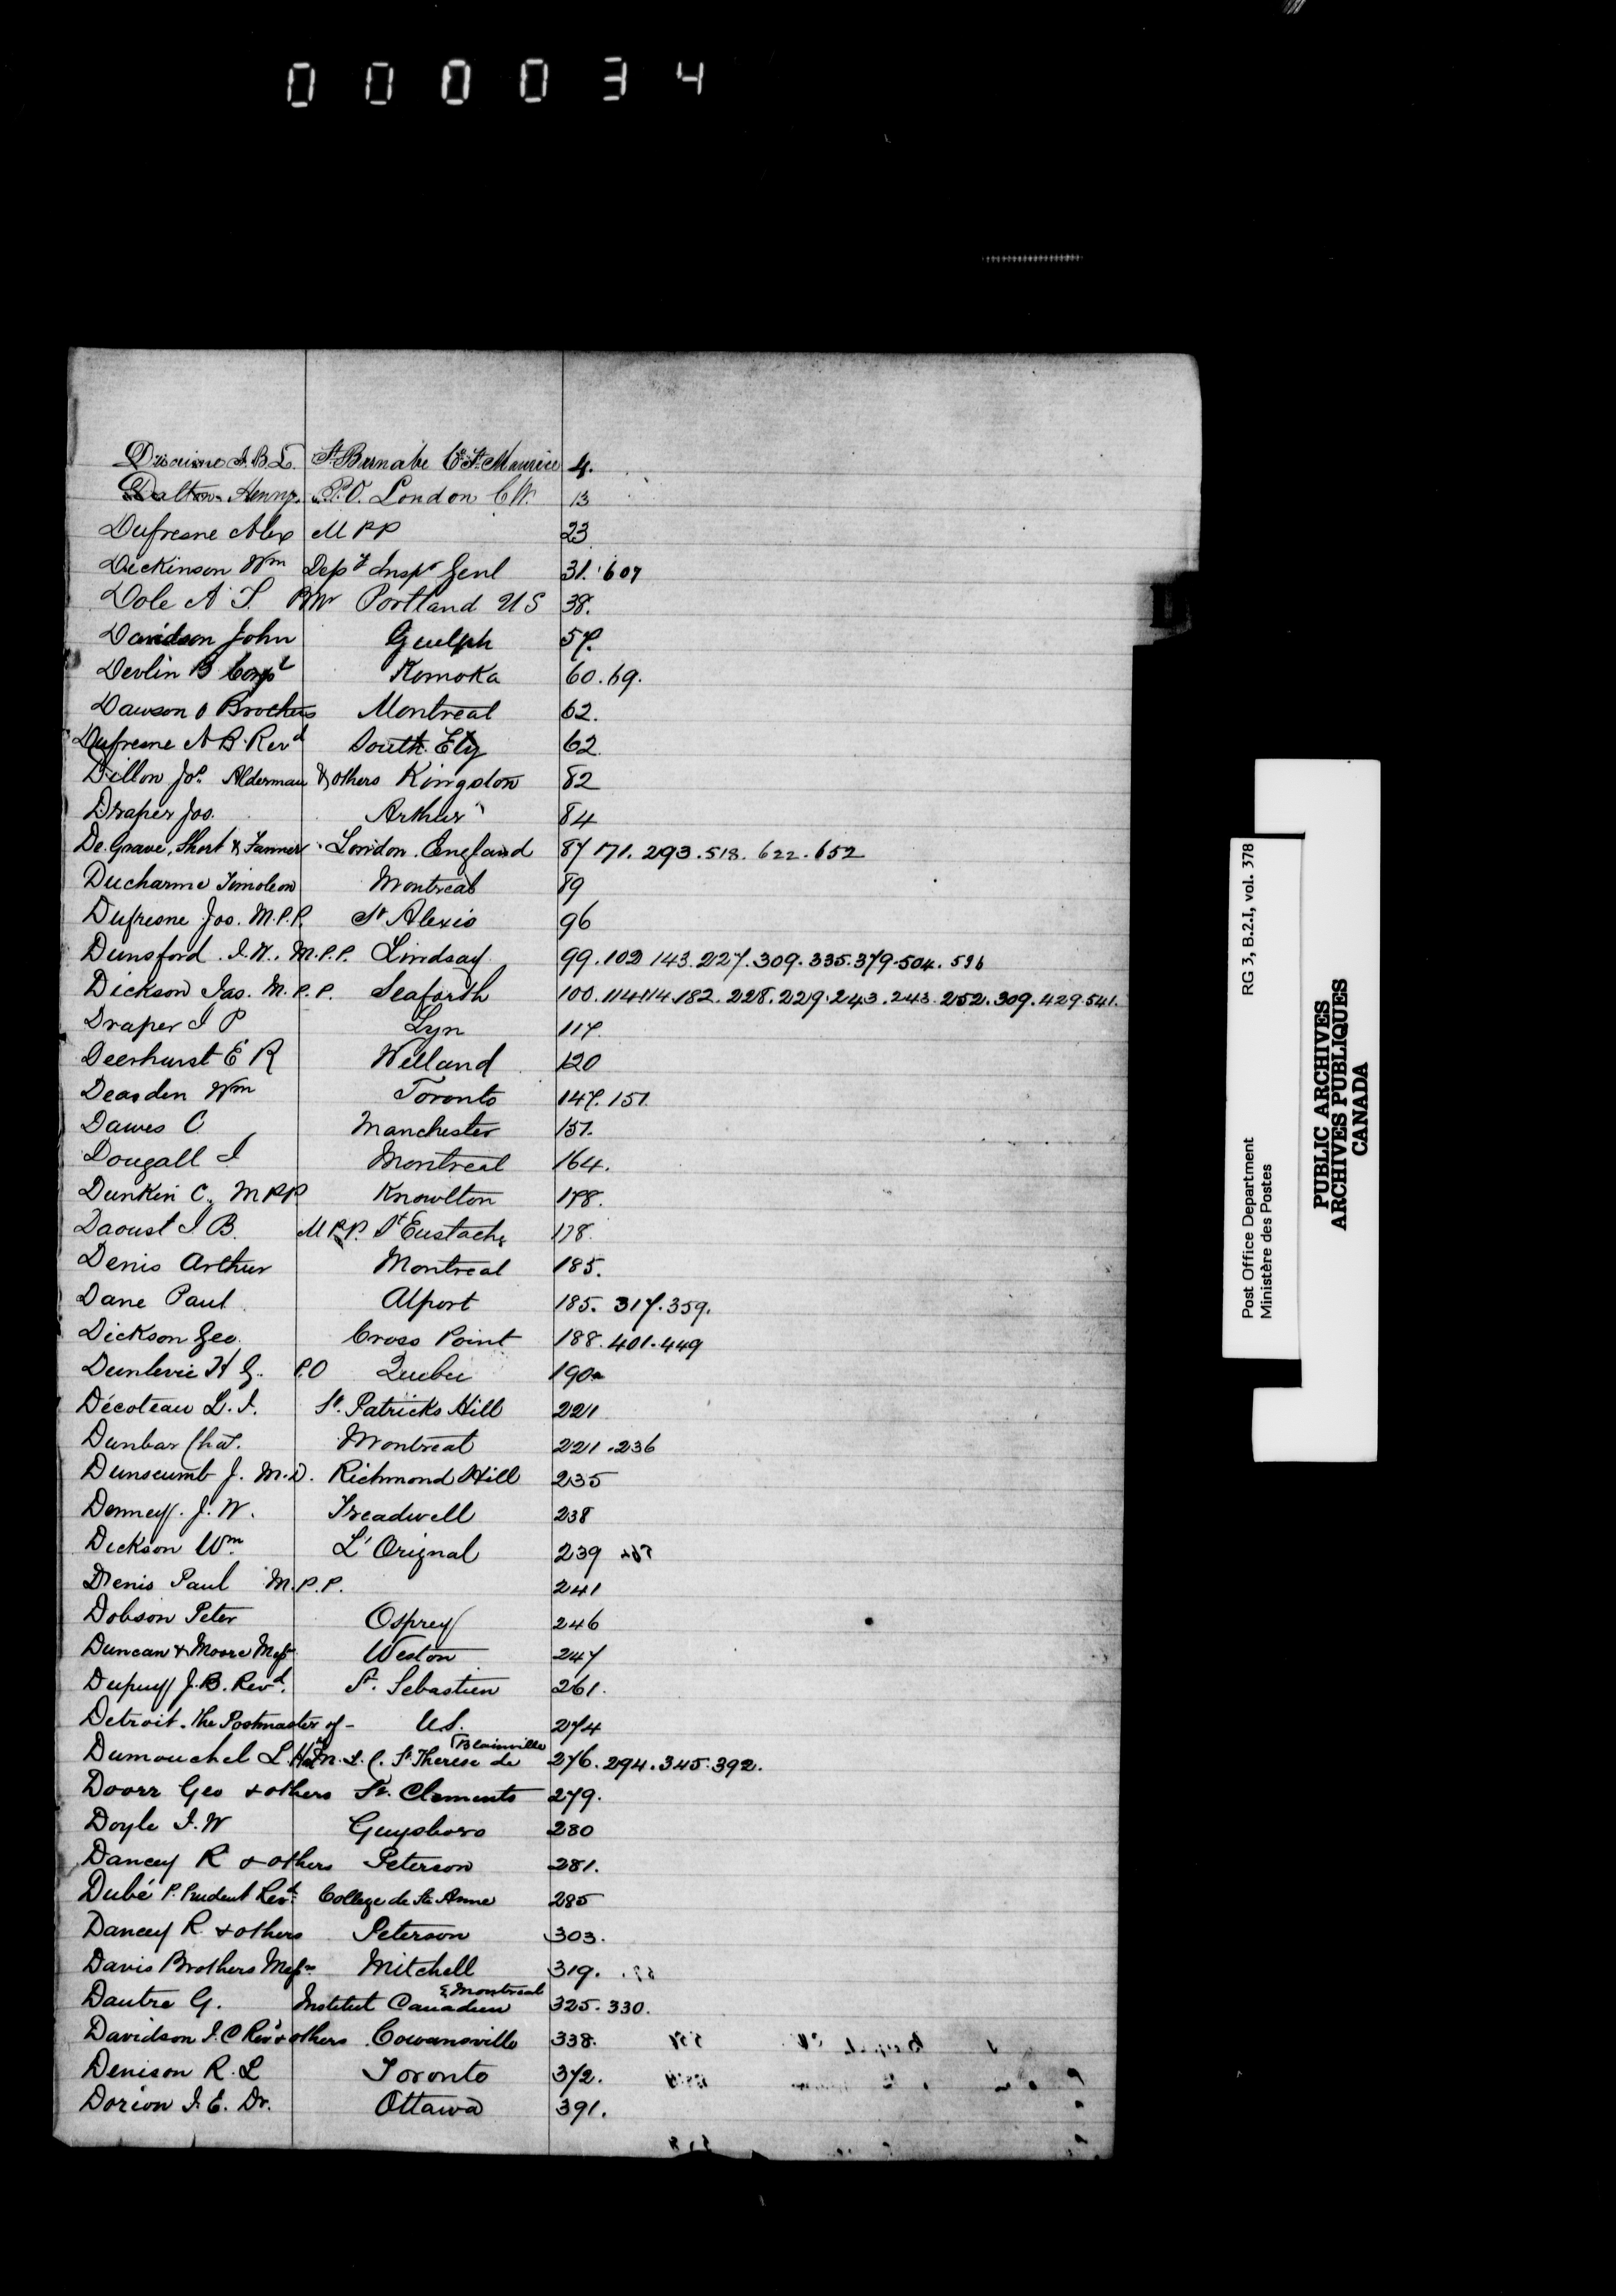 000034
J.B.L. St. Barnabe Co. St. Maurice 4.
Dalton Henry P.O. London C.W. 13
Dufresne Alex M P P 23
Dickinson Wm Depy Inspr Genl 31. 607
Dole A. T. Portland U S 38.
Davidson John Guelph 57.
Devlin B Komoka 60. 69.
Dawson & Brothers Montreal 62.
Dufresne A B. Revd South Ely 62.
Dillon Jos. Alderman & others Kingston 82
Draper Jas. Arthur 84
De Grave, Short & Fanner London. England 87 171. 293. 518. 622. 652
Ducharme Timoleon Montreal 89
Dufresne Jos. M.P.P. St Alexis 96
Dunsford J. W. M.P.P. Lindsay 99. 102 143. 227. 309. 335. 379. 504. 596
Dickson Jas. M. P. P. Seaforth 100. 114. 114. 182. 228. 229. 243. 243. 252. 309. 429. 541.
Draper J P Lyn 117.
Deerhurst E R Welland 120
Deasden Wm Toronto 147. 151.
Dawes C Manchester 151.
Dougall J. Montreal 164.
Dunkin C. M P P Knowlton 178.
Daoust J B. M P.P. St Eustache 178.
Denis Arthur Montreal 185.
Dane Paul Alport 185. 317. 359.
Dickson Geo. Cross Point 188. 401. 449
Dunlevie H G. P.O Quebec 190
Décoteau L. J. St. Patricks Hill 221
Dunbar Chas. Montreal 221. 236
Dunscumb J. M.D. Richmond Hill 235
Denney. J. W. Treadwell 238
Dickson Wm L'Orignal 239
Denis Paul M.P.P. 241
Dobson Peter Osprey 246
Duncan & Moore Messrs Weston 247
Dupuy J. B. Revd. St. Sebastien 261.
Detroit. The Postmaster of - U.S. 274
Dumouchel L. Hon. M. L. C. St Therese de Blainville 276. 294. 345. 392.
Doorr Geo & others St. Clements 279.
Doyle J. W Guysboro 280
Dancey R & others Peterson 281.
Dubé P. Prudent Revd. College de Ste Anne 285
Dancey R. & others Peterson 303.
Davis Brothers Messrs Mitchell 319.
Dautre G. Institut Canadien Montreal 325. 330.
Davidson J. C Revd & others Cowansville 338.
Denison R. L Toronto 372.
Dorion J. E. Dr. Ottawa 391.
D
RG 3, B.2.I, vol. 378
Post Office Department
Ministère des Postes
PUBLIC ARCHIVES
ARCHIVES PUBLIQUES
CANADA